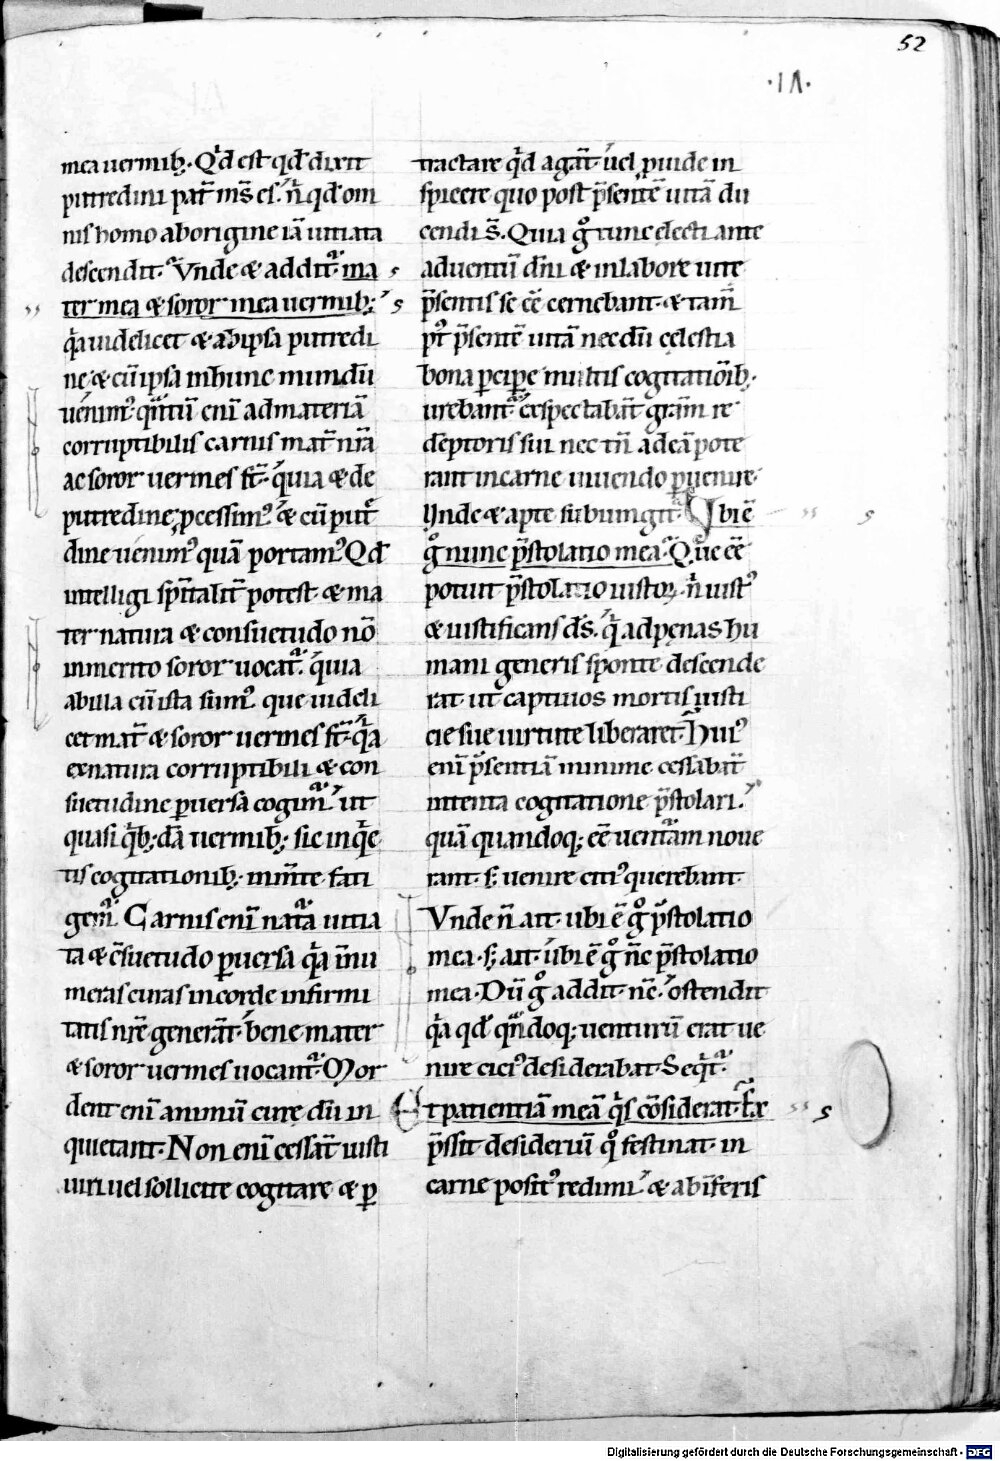 52
·IΛ·
mea uermib;· Q͛d est qd̄ dixit
putredini pat̄ ms̄ es· n̄ qd̄ om
nis homo ab origine iā uitiata
descendit· Vnde & addit̄ ma
ter mea & soror mea uermib;
q̄a uidelicet & ab ipsa putredi
ne & cū ipsa in hunc mundū
uenim᷒· q̄ntū enī ad materiā
corruptibilis carnis mat̄ nr̄a
ac soror uermes st̄· quia & de
putredine ꝓcessim᷒ & cū put̄
dine uenim᷒ quā portam᷒ Qd̄
intelligi sp̄italit̄ potest· & ma
ter natura & consuetudo nō
inmerito soror uocat̄· quia
ab illa cū ista sum᷒· que uideli
cet mat̄ & soror uermes st̄· q̄a
ex natura corruptibili & con
suetudine ꝑuersa cogim̄ ut
quasi q̄b;dā uermib; sic inq̄e
tis cogitationib; in mn̄te fati
gem̄ Carnis enī nat̄a uitia
ta & cs̄uetudo ꝑuersa q̄a innu
meras curas in corde infirmi
tatis nr̄e generāt· bene mater
& soror uermes uocant̄· Mor
dent enī animū cure dū in
quietant· Non enī cessāt iusti
uiri uel sollicite cogitare & ꝑ
tractare q͛d agāt· uel ꝓuide in
spicere quo post p̄sentē uitā du
cendi s̄· Quia gͦ tunc electi ante
aduentū dn̄i & in labore uite
p̄sentis se cē cernebant· & tam̄
pt᷒ p̄sentē uitā nec dū celestia
bona ꝑciꝑe multis cogitatiōib;
urebant̄· & expectabāt grām re
dēptoris sui nec tn̄ ad eā pote
rant in carne uiuendo ꝑuenire·
Vnde & apte subiungit· Vbi ē
gͦ nunc p̄stolatio mea· Que cē
potuit p̄stolatio iustoꝝ· n̄ iust᷒
& iustificans ds̄· q̄ ad pęnas hu
mani generis sponte descende
rat· ut captiuos mortis iusti
cie sue uirtute liberaret· Hui᷒
enī p̄sentiā minime cessabāt
intenta cogitatione p̄stolari·
quā quandoq; cē uent̄am noue
rant· s; uenire citi᷒ querebant·
Vnde n̄ ait· ubi ē gͦ p̄stolatio
mea· s; ait· ubi ē gͦ nc̄ p̄stolatio
mea· Dū gͦ addit· nc̄· ostendit
q̄a qd̄ q̄ndoq; uenturū erat ue
nire cici᷒ desiderabat· Seq͛t̄·
Et patientiā meā q͛s cōsiderat· Ex
p̄ssit desideriū qͦ festinat· in
carne posit᷒ redimi· & ab inferis
Digitalisierung gefördert durch die Deutsche Forschungsgemeinschaft · DFG